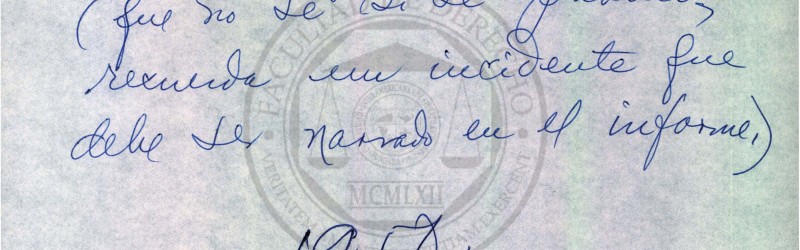 (que no sé si se
recuerda un incidente que
debe ser narrado en el informe.)
FACULTAD DE DERECHO
MCMLXII
VERITATEM
EXERCENT